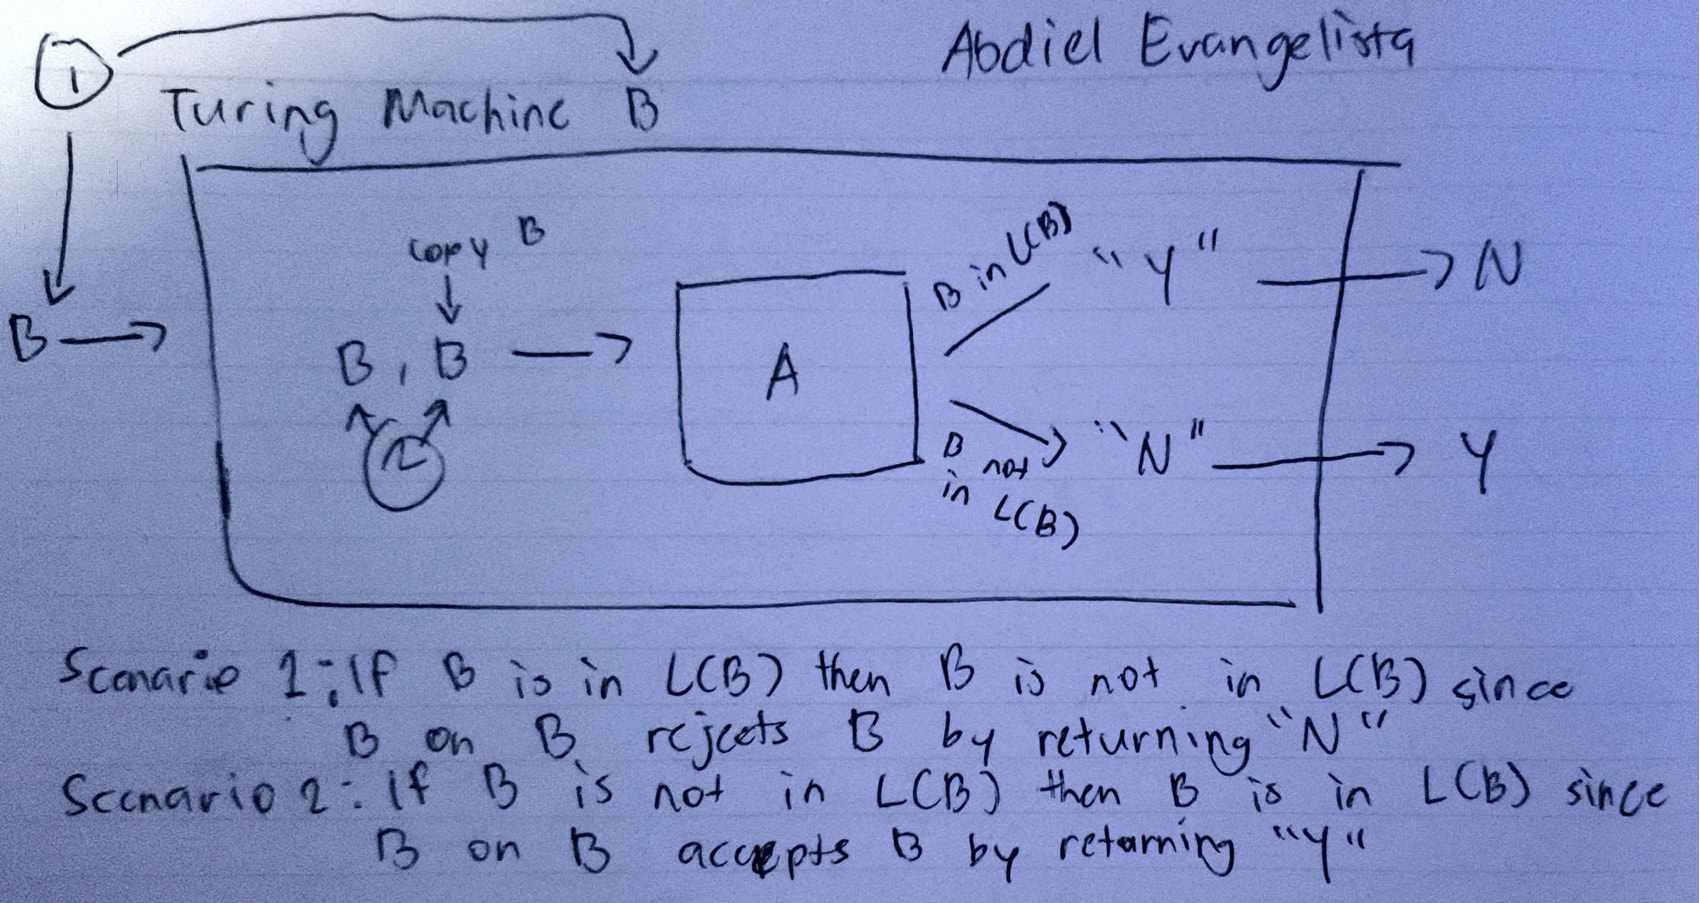 1
Abdiel Evangelista
Turing Machine B
copy B
B
B, B
2
A
B in L(B)
"Y"
N
B not
in L(B)
"N"
Y
Scenario 1: If B is in L(B) then B is not in L(B) since
B on B rejects B by returning "N"
Scenario 2: If B is not in L(B) then B is in L(B) since
B on B accepts B by retarning "Y"